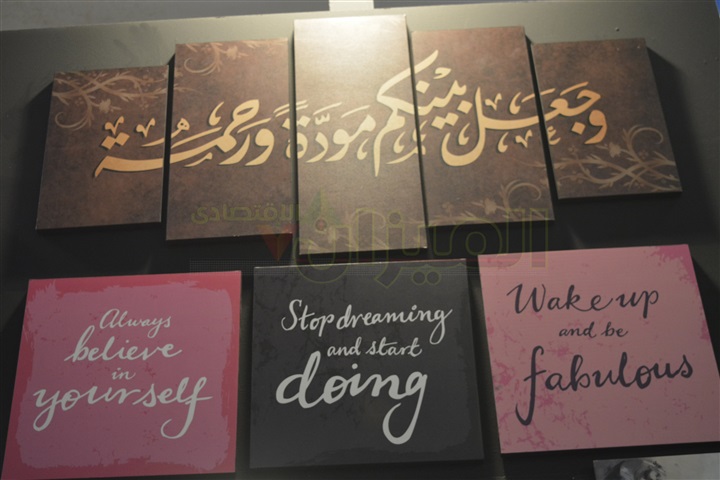 وجعل بينكم مودة ورحمة
الميزان الاقتصادي
Always
believe
in
yourself
Stop dreaming
and start
doing
Wake up
and be
fabulous